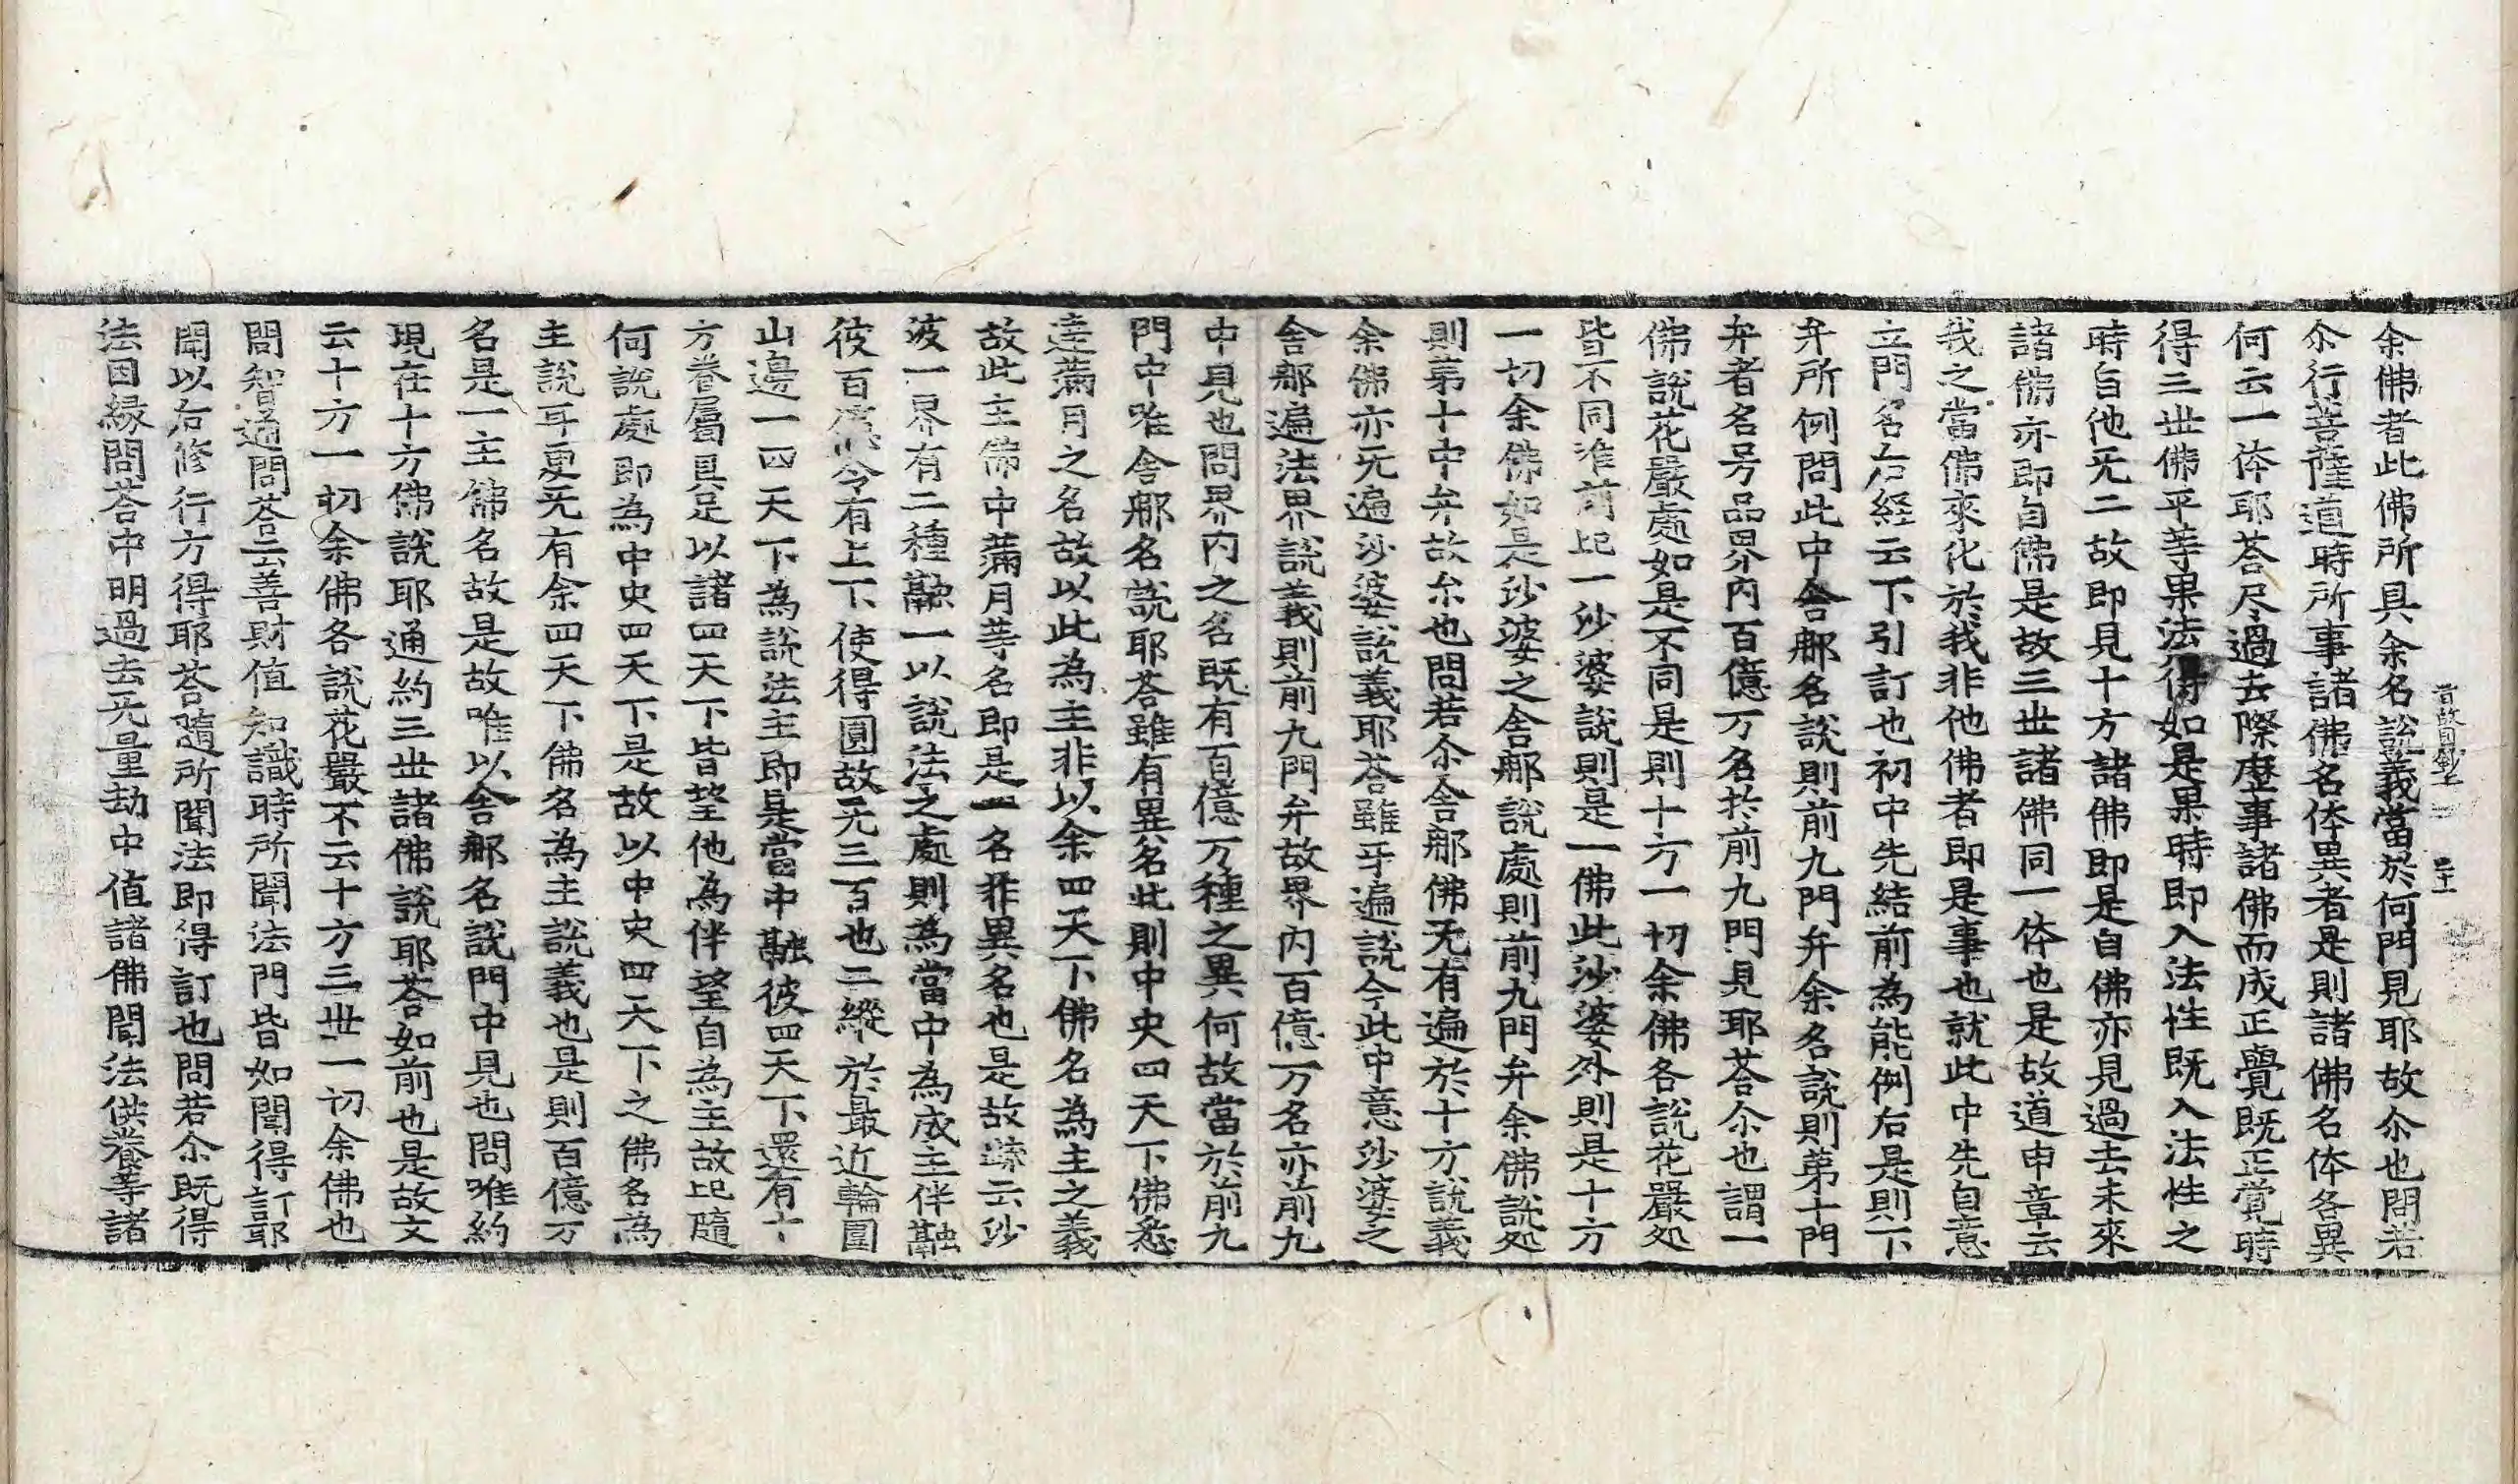 旨故貟鈔上 二 三十
余佛者此佛所具余名說義當於何門見耶故尒也問若
尒行菩薩道時所事諸佛名体異者是則諸佛名体各異
何云一体耶荅尽過去際歷事諸佛而成正覺既正覺時
得三丗佛平等果法得如是果時即入法性既入法性之
時自他无二故即見十方諸佛即是自佛亦見過去未來
諸佛亦即自佛是故三丗諸佛同一体也是故道申章云
我之當佛來化於我非他佛者即是事也就此中先自意
立門名右経云下引訂也初中先結前為能例右是則下
弁所例問此中舎那名說則前九門弁余名說則苐十門
弁者名号品界內百億万名扵前九門見耶荅尒也謂一
佛說花嚴處如是不同是則十方一切余佛各說花嚴处
皆不同准前比一沙婆說則是一佛此沙婆外則是十方
一切余佛如是沙婆之舎那說處則前九門弁余佛說处
則苐十中弁故尒也問若尒舎那佛无有遍於十方說義
余佛亦无遍沙婆說義耶荅雖乎遍說今此中意沙婆之
舎那遍法界說義則前九門弁故界内百億万名亦前九
中見也問界内之名既有百億万種之異何故當於前九
門中唯舎那名說耶荅雖有異名此則中央四天下佛悉
達滿月之名故以此為主非以余四天下佛名為主之義
故此主佛中滿月等名即是一名非異名也是故䟽云沙
婆一界有二種融一以說法之處則為當中為成主伴融
彼百億令有上下使得圓故无三百也二縱於最近輪圍
山邊一四天下為說法主即是當中融彼四天下還有十
方眷屬具足以諸四天下皆望他為伴望自為主故比隨
何說處即為中央四天下是故以中央四天下之佛名為
主說耳更无有余四天下佛名為主說義也是則百億万
名是一主佛名故是故唯以舎那名說門中見也問唯約
現在十方佛說耶通約三丗諸佛說耶荅如前也是故文
云十方一切余佛各說花嚴不云十方三丗一切余佛也
問智通問荅云善財值知識時所聞法門皆如聞得訂耶
聞以右修行方得耶荅隨所聞法即得訂也問若尒既得
法因緣問荅中明過去无量劫中值諸佛聞法供養等諸